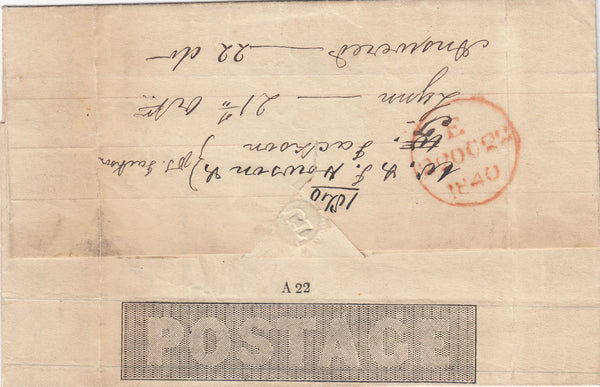 1840
W. & J. Howson &
Jackson
Lynn — 21st Oct
Answered — 22 do
E
OC 22
1840
A 22
POSTAGE